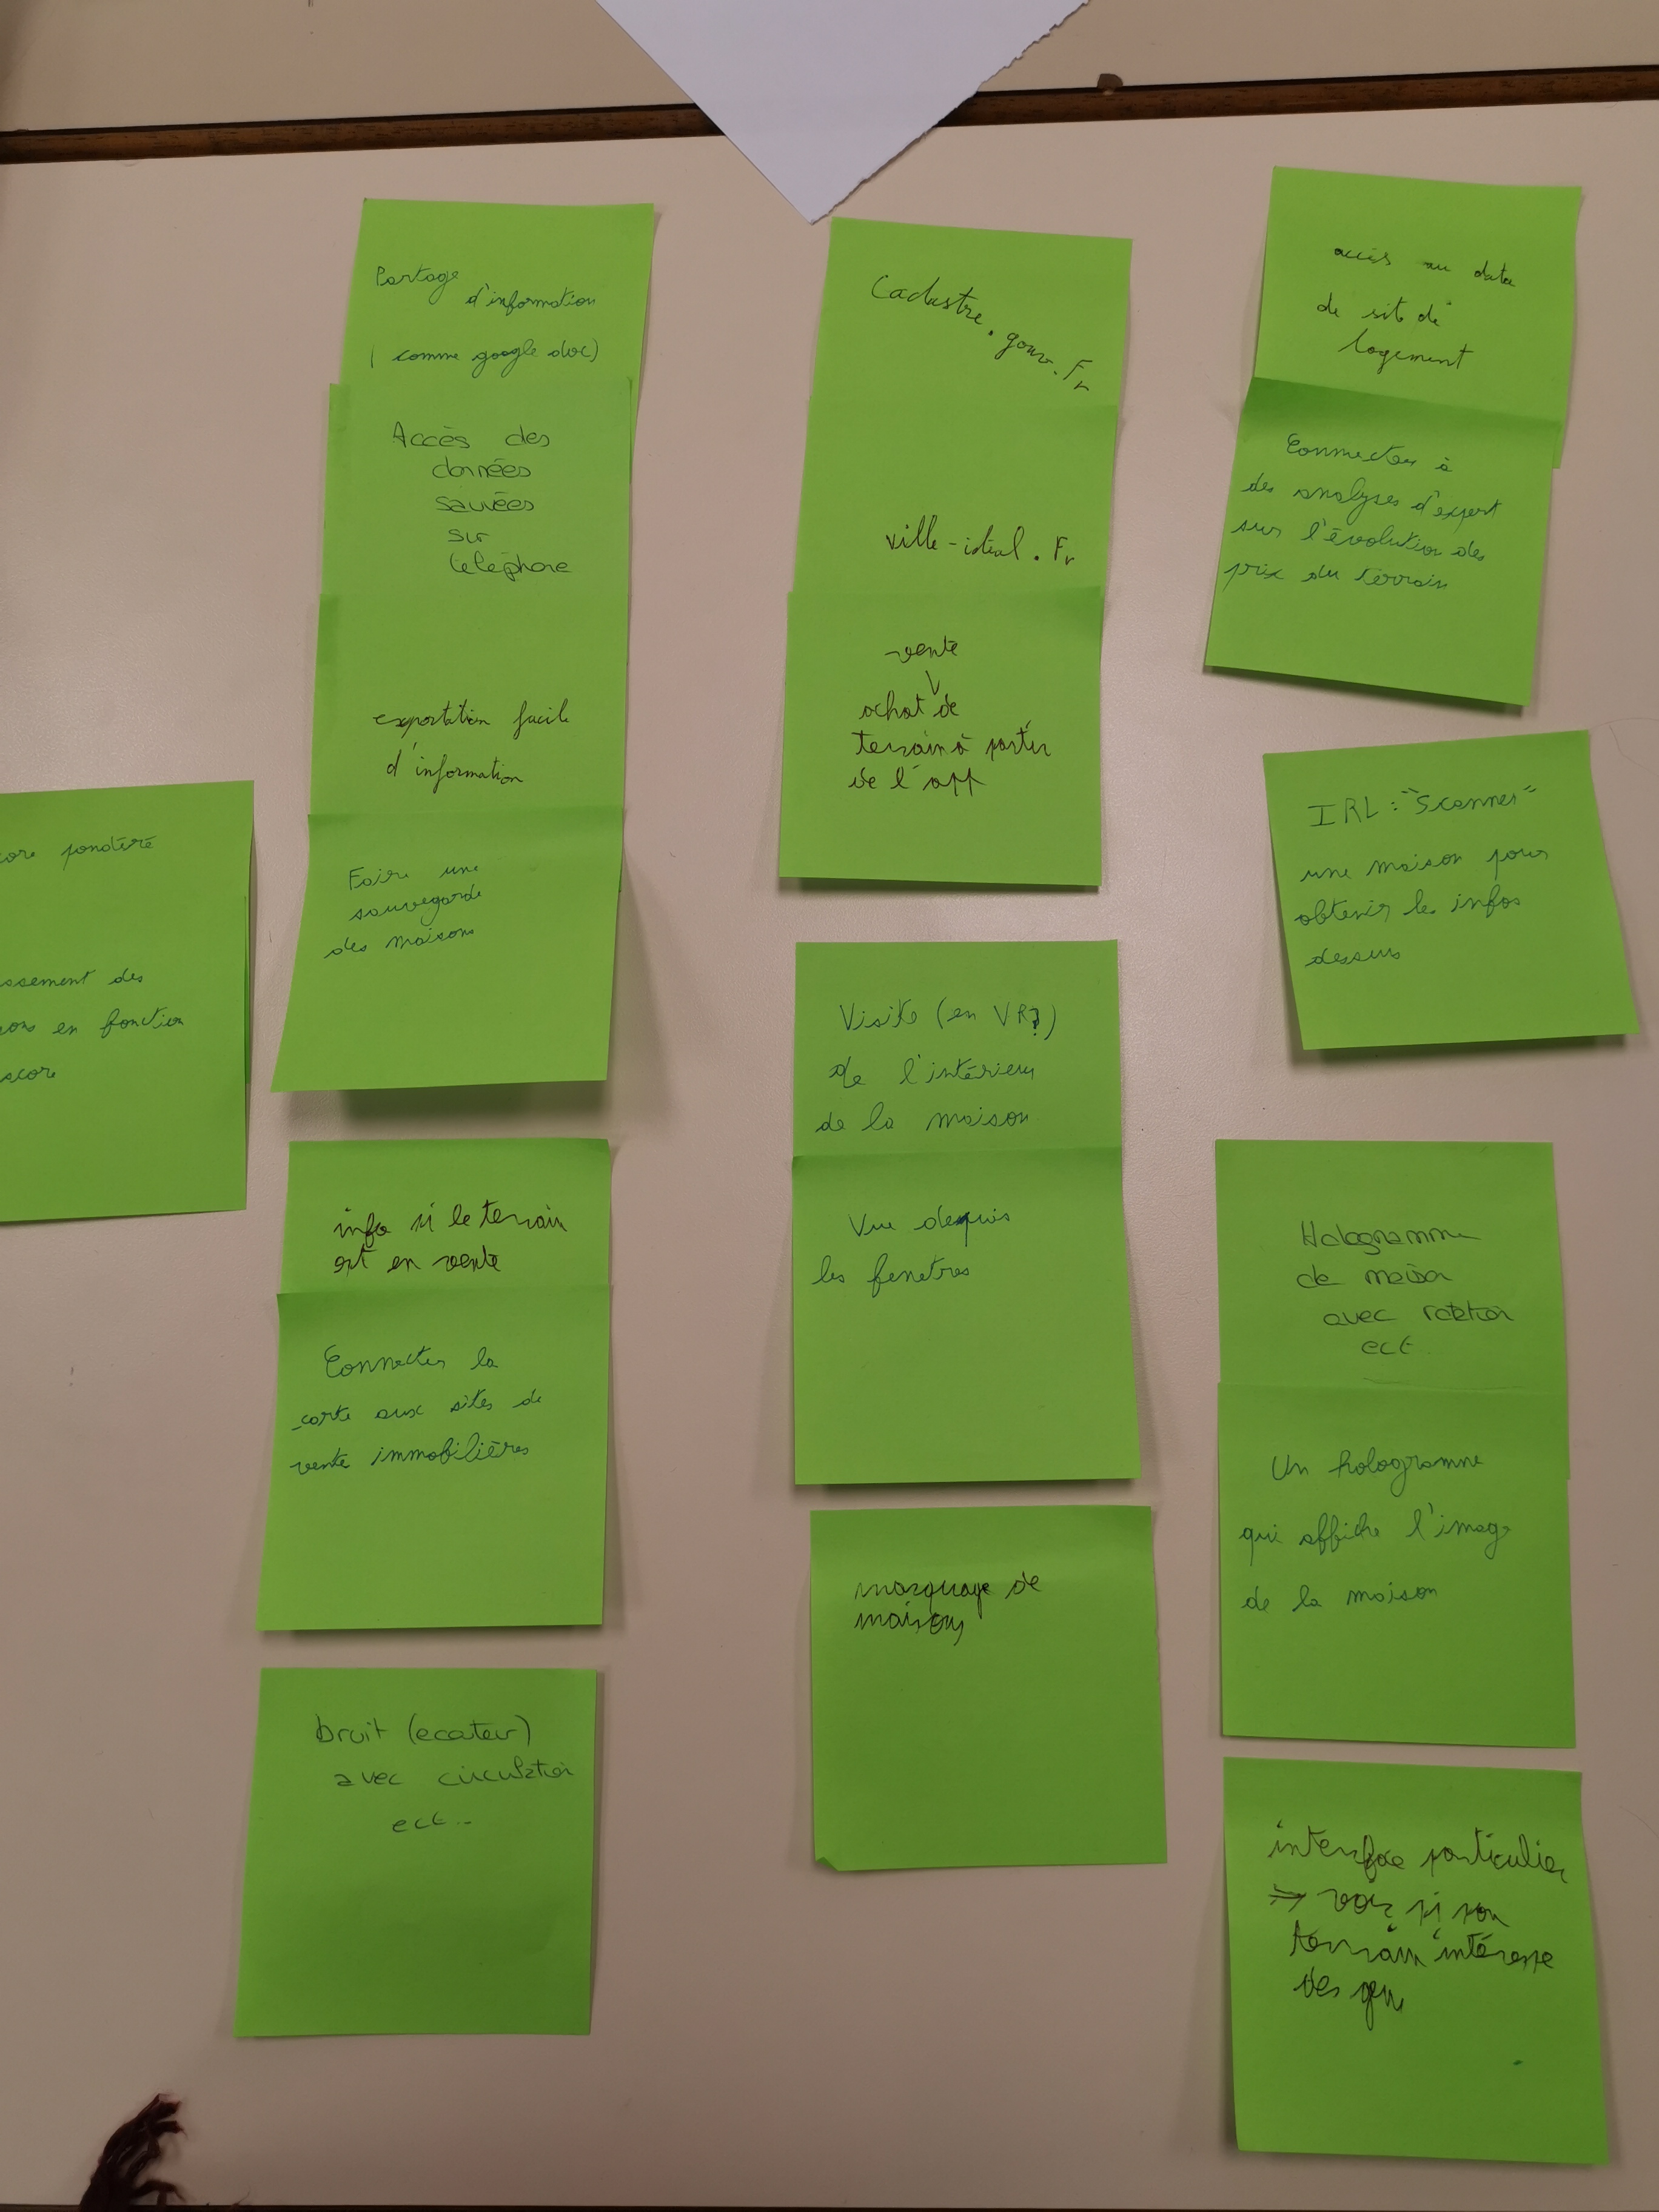 core pondéré
ssement des
ons en fonction
score
Partage
d'information
( comme google doc)
Accès des
données
sauvées
sur
téléphone
exportation facile
d'information
Faire une
sauvegarde
des maisons
info si le terrain
est en vente
Connecter la
carte aux sites de
vente immobilières
bruit (ecouteur)
avec circulation
ect..
Cadastre.gouv.Fr
ville-idéal.Fr
vente
V
achat de
terrain à partir
de l'app
Visite (en VR?)
de l'intérieur
de la maison
Vue depuis
les fenetres
marquage de
maisons
accès au data
de site de
logement
Connecter à
des analyses d'expert
sur l'évolution des
prix du terrain
IRL : "Scanner"
une maison pour
obtenir les infos
dessus
Hologramme
de maison
avec rotation
ect.
Un hologramme
qui affiche l'image
de la maison
interface particulier
=> voir si son
terrain intéresse
des gens